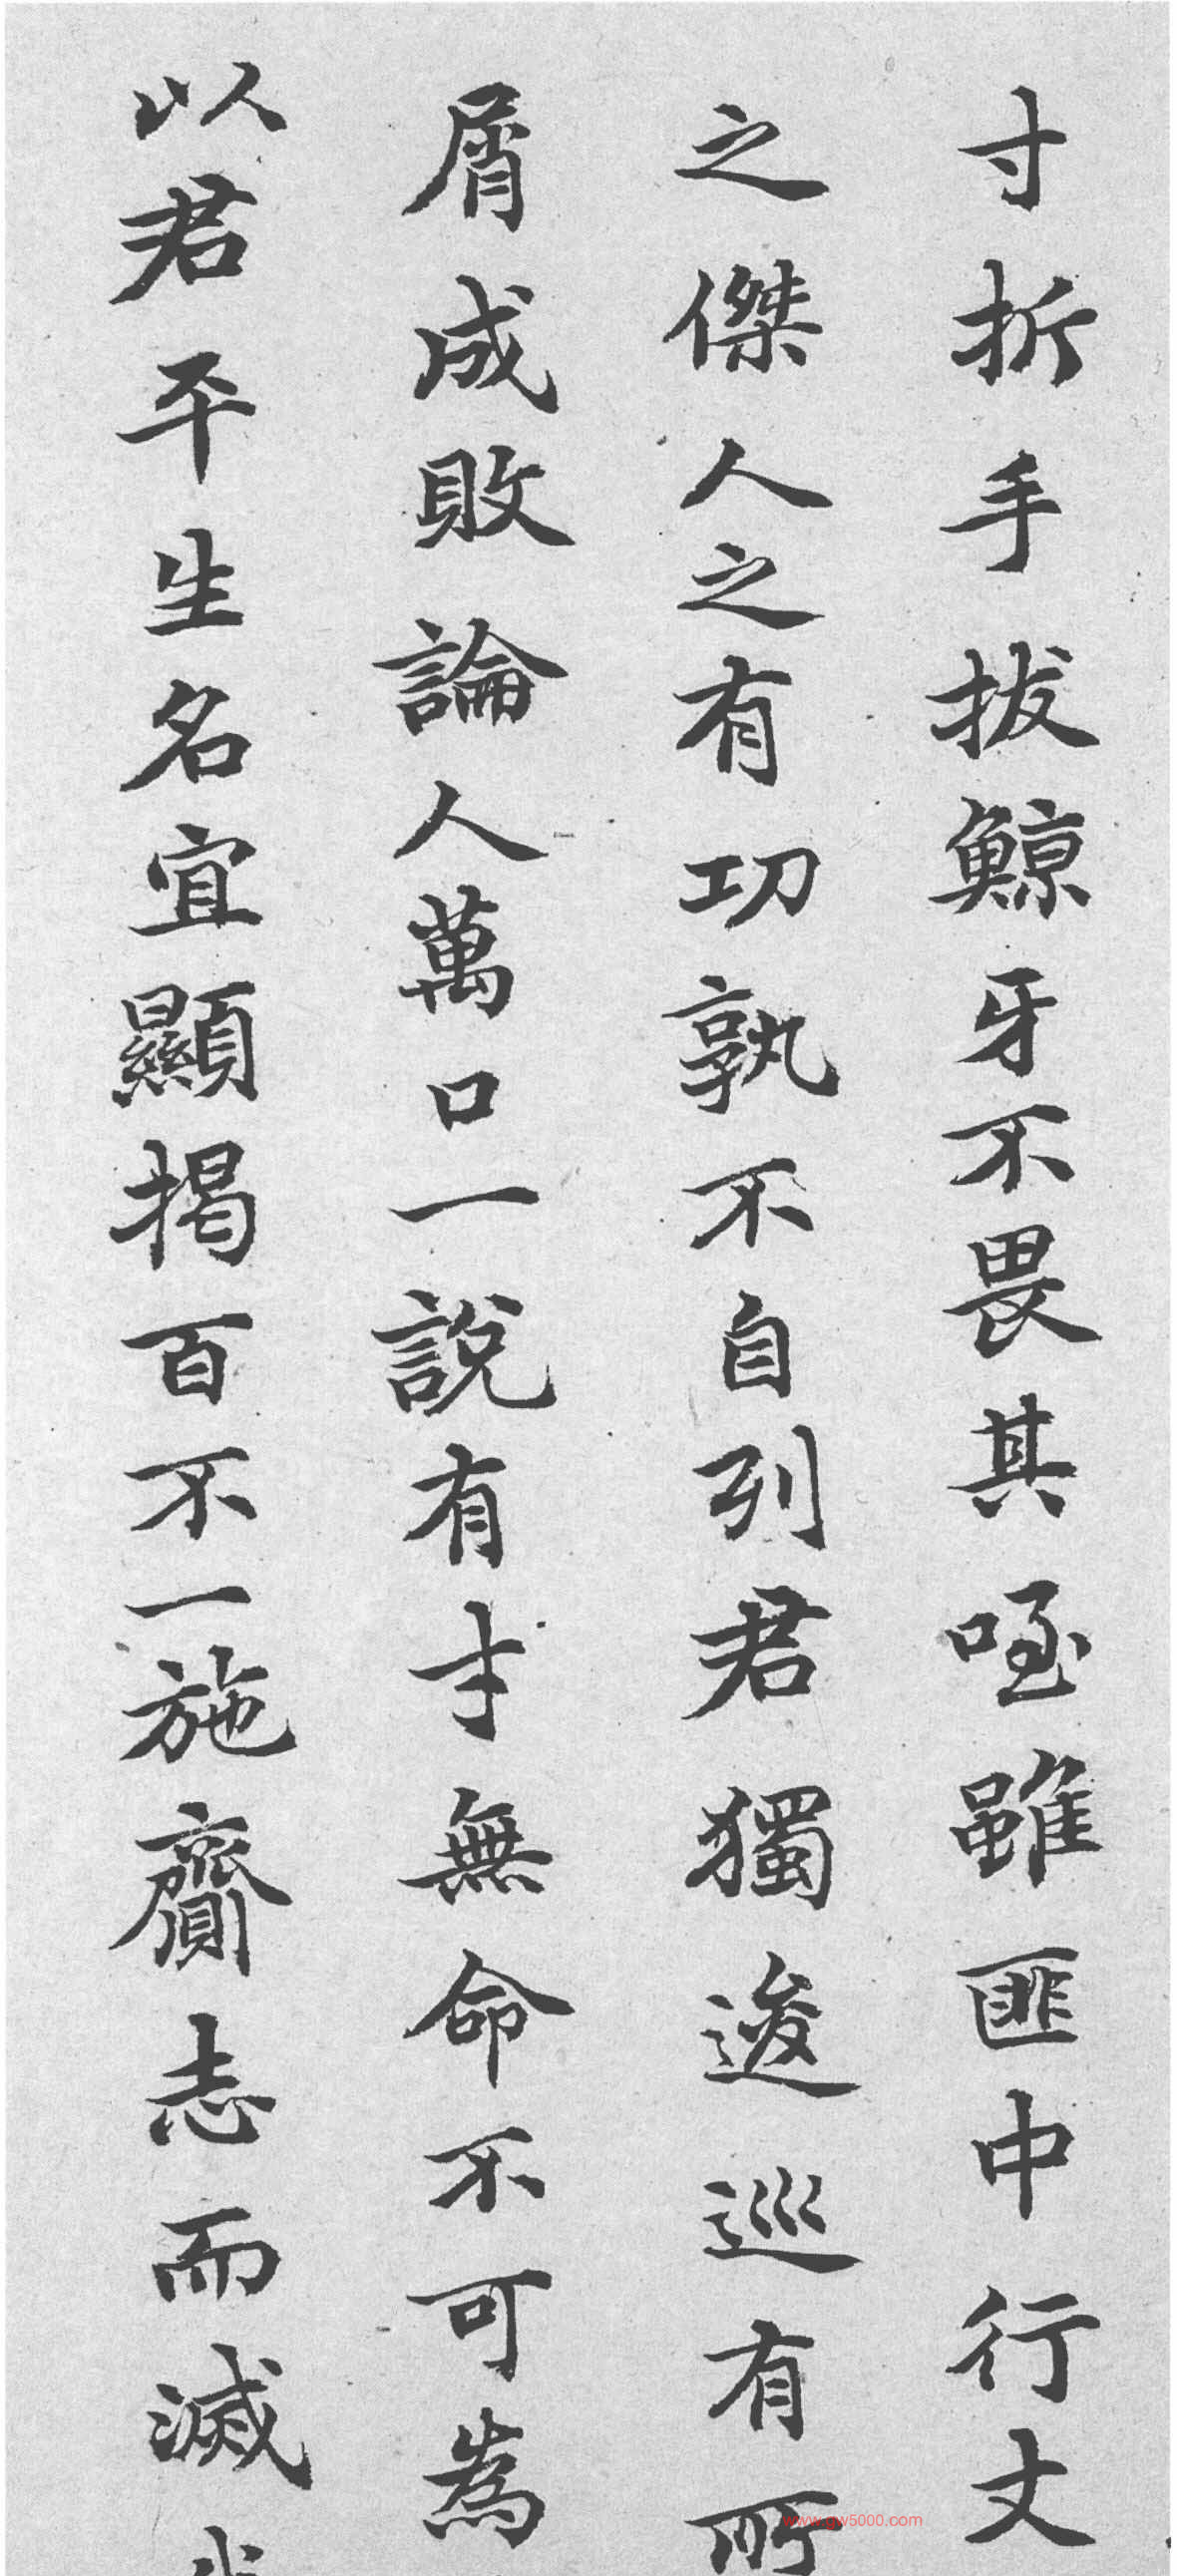 寸折手拔鲸牙不畏其咥雖匪中行丈
之傑人之有功孰不自列君獨逡巡有所
屑成敗論人萬口一說有才無命不可為
以君平生名宜顯揭百不一施齎志而滅
www.gw5000.com